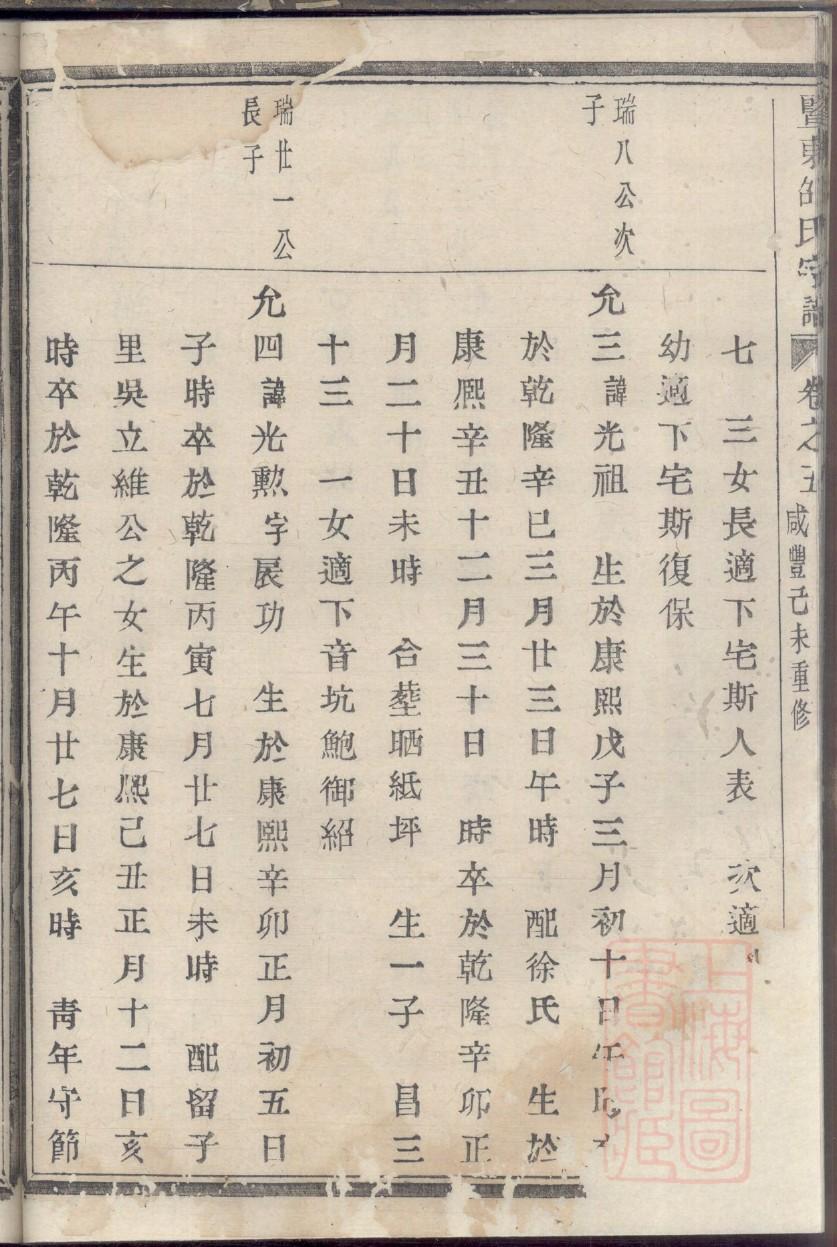 暨東 氏宗譜 卷之五 咸豐己未重修
七 三女長適下宅斯人表 次適
幼適下宅斯復保
瑞八公次
子
允三諱光祖 生於康熙戊子三月初十日午時
於乾隆辛巳三月廿三日午時 配徐氏 生於
康熙辛丑十二月三十日 時卒於乾隆辛卯正
月二十日未時 合塟晒紙坪 生一子 昌三
十三 一女適下音坑鮑御紹
瑞廿一公
長子
允四諱光勲字展功 生於康熙辛卯正月初五日
子時卒於乾隆丙寅七月廿七日未時 配留子
里吳立維公之女生於康熙己丑正月十二日亥
時卒於乾隆丙午十月廿七日亥時 靑年守節
上海圖
書館藏